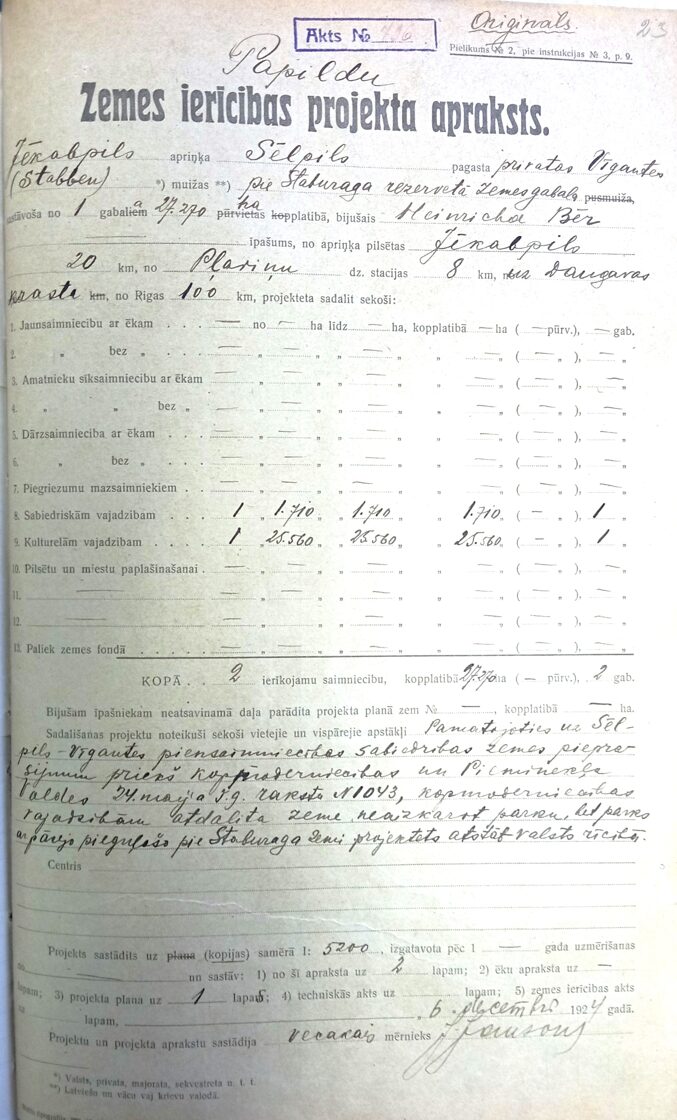 Oriģinals. 23
Akts №
Pielikums № 2, pie instrukcijas № 3, p. 9.
Papildu
Zemes ierīcības projekta apraksts.
Jēkabpils apriņķa Sēlpils pagasta privatas Vīgantes
(Stabben) *) muižas **) pie Staburaga rezervetā zemesgabals pusmuiža,
sastāvoša no 1 gabaliem à 27.270 ha pūrvietas kopplatībā, bijušais Heinricha Bēr
īpašums, no apriņķa pilsētas Jēkabpils
20 km, no Pļaviņu dz. stacijas 8 km, uz Daugavas
krasta km, no Rigas 100 km, projekteta sadalit sekoši:
1. Jaunsaimniecību ar ēkam . . . — no — ha līdz — ha, kopplatībā — ha ( — pūrv.), — gab.
2. „ bez „ . . . — „ — „ „ — „ „ — „ ( — „ ), — „
3. Amatnieku sīksaimniecību ar ēkam — „ — „ „ — „ „ — „ ( — „ ), — „
4. „ „ bez „ — „ — „ „ — „ „ — „ ( — „ ), — „
5. Dārzsaimniecība ar ēkam . . . . — „ — „ „ — „ „ — „ ( — „ ), — „
6. „ bez „ . . . . — „ — „ „ — „ „ — „ ( — „ ), — „
7. Piegriezumu mazsaimniekiem . . . — „ — „ „ — „ „ — „ ( — „ ), — „
8. Sabiedriskām vajadzibam . . . . 1 „ 1.710 „ „ 1.710 „ „ 1.710 „ ( — „ ), 1 „
9. Kulturelām vajadzibam . . . . 1 „ 25.560 „ „ 25.560 „ „ 25.560 „ ( — „ ), 1 „
10. Pilsētu un miestu paplašinašanai . — „ — „ „ — „ „ — „ ( — „ ), — „
11. — . . . — „ — „ „ — „ „ — „ ( — „ ), — „
12. — . . . — „ — „ „ — „ „ — „ ( — „ ), — „
13. Paliek zemes fondā . . . . . — „ — „ „ — „ „ — „ ( — „ ), — „
KOPĀ . . 2 ierīkojamu saimniecību, kopplatībā 27.270 ha ( — pūrv.), 2 gab.
Bijušam īpašniekam neatsavinamā daļa parādīta projekta planā zem № — , kopplatībā — ha.
Sadalīšanas projektu noteikuši sekoši vietejie un vispārejie apstākļi Pamatojoties uz Sēl-
pils-Vīgantes piensaimniecības sabiedrības zemes piepra-
sijumu priekš kopmoderniecības un Pieminekļu
Valdes 24. maija š.g. rakstu N 1043, kopmoderniecības
vajadzībām atdalita zeme neaizkarot parku, bet parks
ar pārejo pieguļošo pie Staburaga zemi projektets atstāt valsts rīcibā.
Centris
Projekts sastādits uz plana (kopijas) samērā 1: 5200, izgatavota pēc 1 — gada uzmērišanas
no — un sastāv: 1) no šī apraksta uz 2 lapam; 2) ēku apraksta uz —
lapam; 3) projekta plana uz 1 lapas; 4) techniskās akts uz lapam; 5) zemes ierīcibas akts
uz lapam, „ 6. decembrī 1924 gadā.
Projektu un projekta aprakstu sastādija vecakais mērnieks J. Jansons
*) Valsts, privata, majorata, sekvestreta u. t. t.
**) Latviešu un vācu vaj krievu valodā.